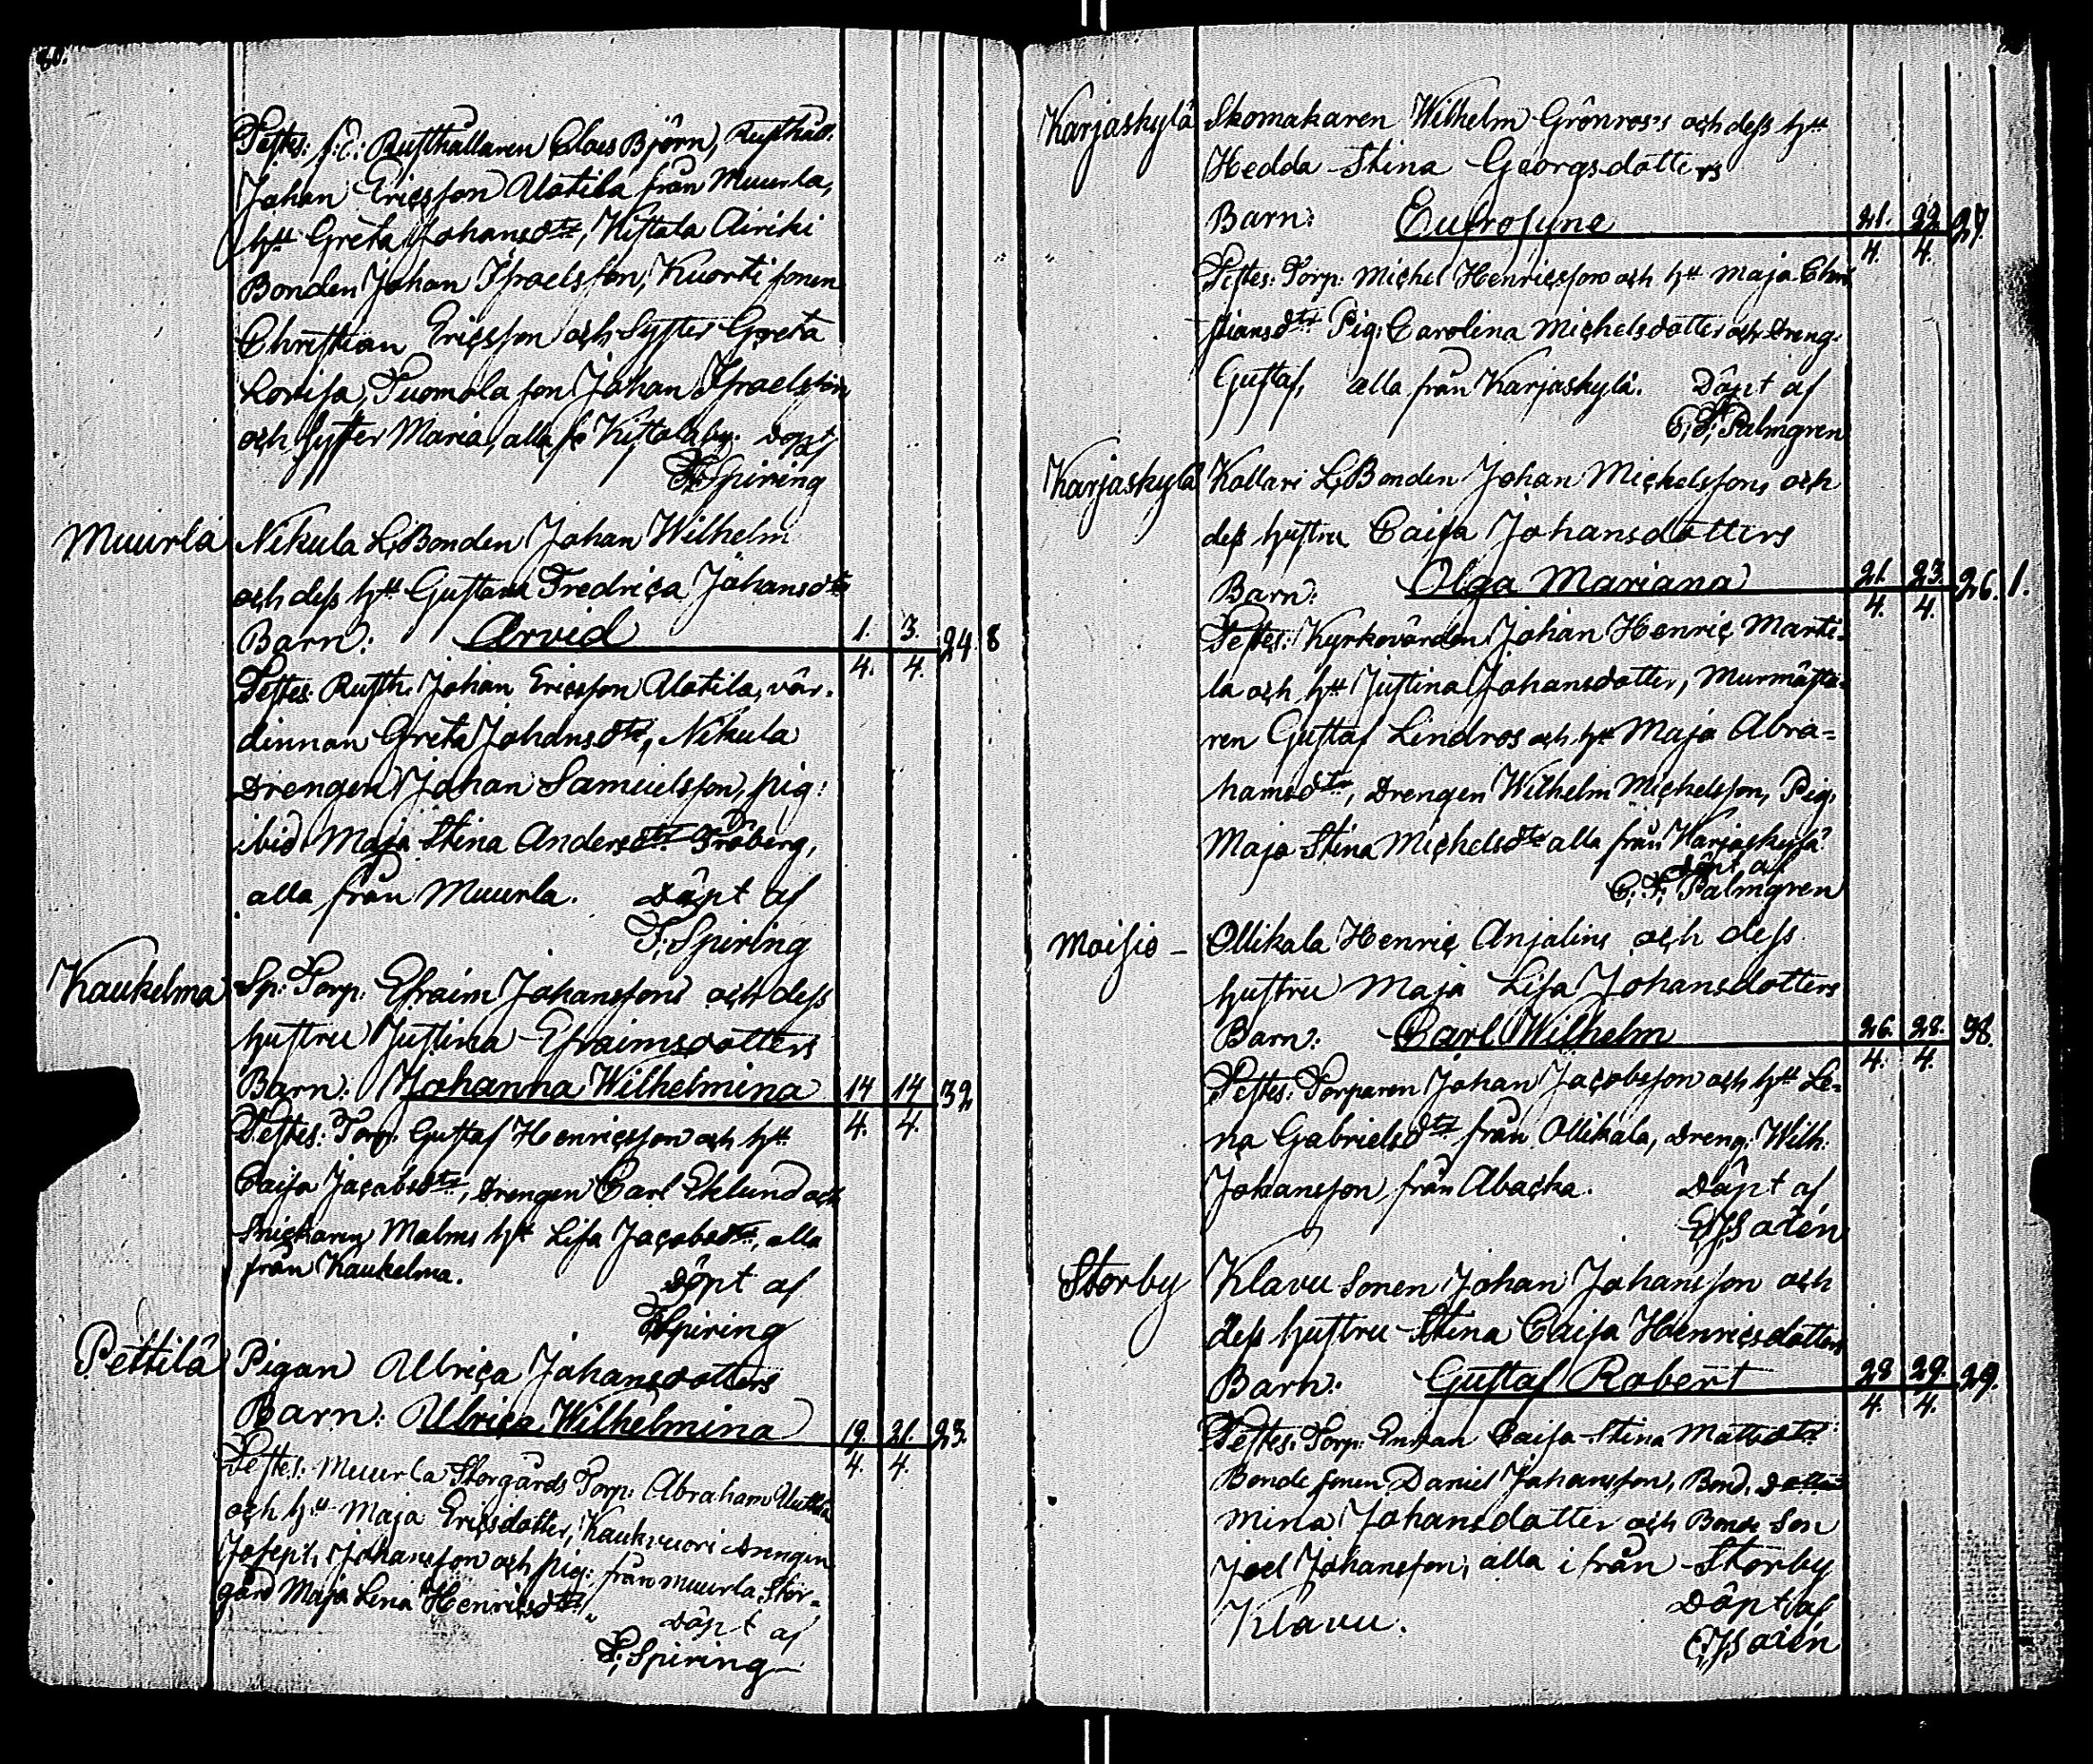 80.
Testes: f.d. Rusthållaren Claes Björn, Rusthåll.
Johan Ericsson Uotila från Muurla,
h:u Greta Johansdtr, Kistala Airiki
Bonden Johan Israelsson, Kuorti sonen
Christian Ericsson och Syster Greta
Lovisa, Tuomola son Johan Israelsson
och syster Maria, alla fr. Kistola by. Döpt af
F. Spiring
Muurla Nikula L. Bonden Johan Wilhelm
och dess h:u Gustava Fredrica Johansdtr
Barn: Arvid 1. 3. 24. 8
4. 4.
Testes: Rusth. Johan Ericsson Uotila, vär-
dinnan Greta Johansdtr, Nikula
Drengen Johan Samuelsson, pig:
ibid. Maja Stina Andersdtr Fröberg,
alla från Muurla. Döpt af
F. Spiring
Kaukelma Sp: Torp: Efraim Johanssons och dess
hustru Justina Efraimsdotters
Barn: Johanna Wilhelmina 14 14 32
4. 4.
Testes: Torp: Gustaf Henricsson och h:u
Caisa Jacobsdtr, Drengen Carl Eklund och
Snickaren Malms h:u Lisa Jacobsdtr, alla
från Kaukelma. Döpt af
F. Spiring
Pettilä Pigan Ulrica Johansdotters
Barn: Ulrica Wilhelmina 19. 21. 23.
4. 4.
Testes: Muurla Storgårds Torp: Abraham
och h:u Maja Ericsdotter, Kaukvuori drengen
Joseph Johansson och pig: från Muurla Stor-
gård Maja Lena Henricsdtr.
Döpt af
F. Spiring
Karjaskylä Skomakaren Wilhelm Grönros's och dess h:u
Hedda Stina Georgsdotters
Barn: Eufrosyne 21. 22. 27.
4. 4.
Testes: Torp: Michel Henricsson och h:u Maja Chri
stiansdtr Pig: Carolina Michelsdotter och Dreng:
Gustaf, alla från Karjaskylä. Döpt af
C. F. Palmgren
Karjaskylä Kollari L. Bonden Johan Michelssons och
dess hustru Caisa Johansdotters
Barn: Olga Mariana 21. 23. 26. 1.
4. 4.
Testes: Kyrkovärden Johan Henric Marti-
la och h:u Justina Johansdotter, Murmästa-
ren Gustaf Lindros och h:u Maja Abra-
hamsdtr, Drengen Wilhelm Michelsson, Pig:
Maja Stina Michelsdtr alla från Karjaskylä.
Döpt af
C. F. Palmgren
Moisio - Ollikala Henric Anjalins och dess
hustru Maja Lisa Johansdotters
Barn: Carl Wilhelm 26. 28. 38.
4. 4.
Testes: Torparen Johan Jacobsson och h:u Le-
na Gabrielsdtr från Ollikala, Dreng: Wilh.
Johansson, från Abacka. Döpt af
Storby Klavu Sonen Johan Johansson och
dess hustru Stina Caisa Henricsdotters
Barn: Gustaf Robert 28 29. 29.
4. 4.
Testes: Torp: Enkan Caisa Stina Mattsdtr
Bonde sonen Daniel Johansson, Bond. dotter
Mina Johansdotter och Bonde Son
Joel Johansson, alla ifrån Storby
Klavu. Döpt af